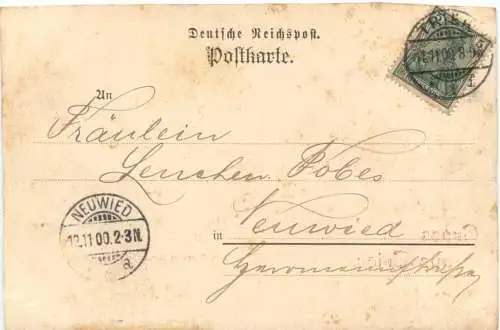 Deutsche Reichspost.
Postkarte.
TRIER
12.11.00. 8-9
An
Fräulein
Lenchen Fobes
NEUWIED
12.11 00. 2-3N.
a
in Neuwied
Hermannstraße